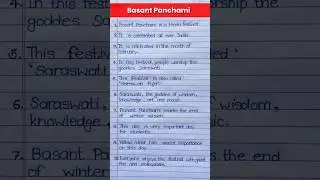 Basant Panchami
1. Basant Panchami is a Hindu festival.
2. It is celebrated all over India.
3. It is celebrated in the month of
4. In this festival, people worship the
goddess Saraswati.
5. This festival is also called
"Saraswati Puja".
6. Saraswati, the goddess of wisdom,
knowledge, art and music.
7. Basant Panchami marks the end
of winter season.
8. This day is very important day
for students.
9. Yellow colour has great importance
on this day.
10. Everyone enjoys the festival with great
and enthusiasm.
4. In this festival
goddes Saraswati
5. This festival
"Saraswati
6. Saraswati,
knowledge
7. Basant Pan
of winter
worship the
called
wisdom,
music.
the end